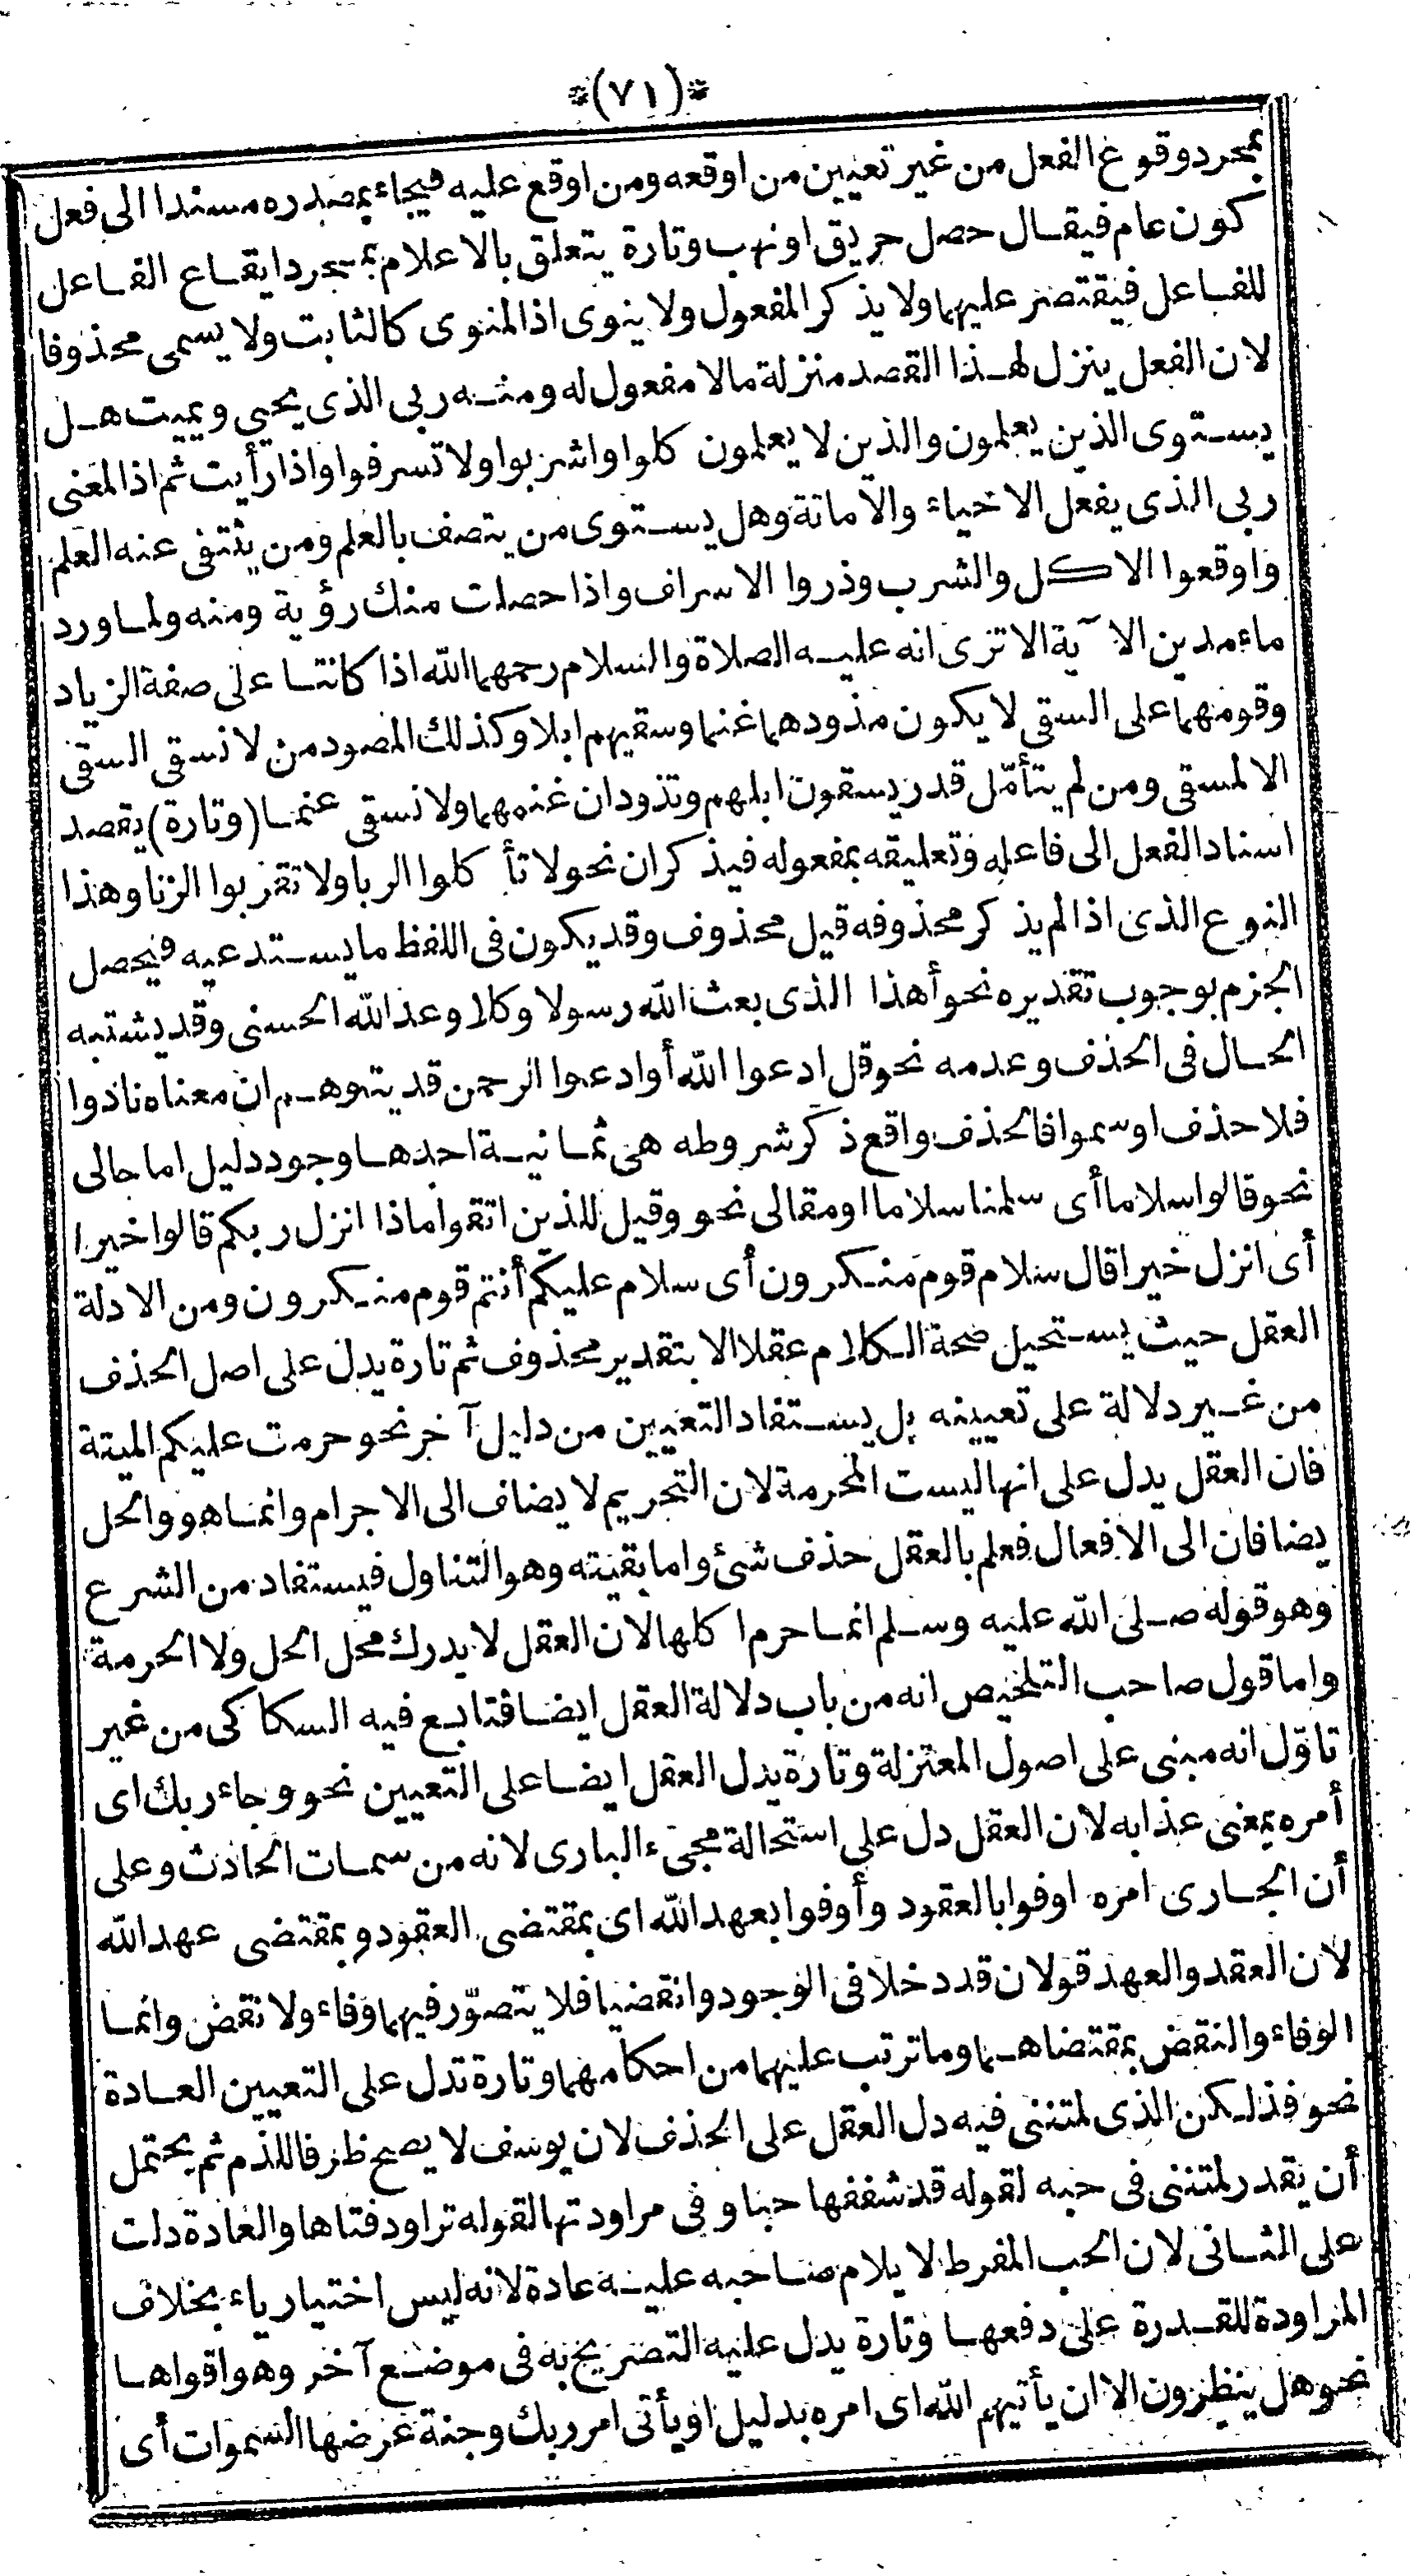 *(٧١)*
بمجرد وقوع الفعل من غير تعيين من اوقعه ومن اوقع عليه فيجاء بمصدره مسندا الى فعل
كون عام فيقال حصل حريق او نهب وتارة يتعلق بالاعلام بمجرد ايقاع الفاعل
للفاعل فيقتصر عليهما ولا يذكر المفعول ولا ينوى اذ المنوى كالثابت ولا يسمى محذوفا
لان الفعل ينزل لهذا القصد منزلة مالا مفعول له ومنه ربى الذى يحيى ويميت هل
يستوى الذين يعلمون والذين لا يعلمون كلوا واشربوا ولا تسرفوا واذا رأيت ثم اذ المعنى
ربى الذى يفعل الاحياء والاماتة وهل يستوى من يتصف بالعلم ومن ينتفى عنه العلم
واوقعوا الاكل والشرب وذروا الاسراف واذا حصلت منك رؤية ومنه ولما ورد
ماء مدين الآية الا ترى انه عليه الصلاة والسلام رحمهما الله اذا كانتا على صفة الزياد
وقومهما على السقى لا يكون مذودهما غنما وسقيهم ابلا وكذلك المصود من لا نسقى السقى
الالمسقى ومن لم يتأمّل قدر يسقون ابلهم وتذودان غنمهما ولا نسقى عنما (وتارة) يقصد
اسناد الفعل الى فاعله وتعليقه بمفعوله فيذكران نحو لا تأكلوا الربا ولا تقربوا الزنا وهذا
النوع الذى اذا لم يذكر محذوفه قيل محذوف وقد يكون فى اللفظ ما يستدعيه فيحصل
الجزم بوجوب تقديره نحو أهذا الذى بعث الله رسولا وكلا وعد الله الحسنى وقد يشتبه
الحال فى الحذف وعدمه نحو قل ادعوا الله أو ادعوا الرحمن قد يتوهم ان معناه نادوا
فلا حذف او سموا فالحذف واقع ذكر شروطه هى ثمانية احدها وجود دليل اما حالى
نحو قالوا سلاما أى سلمنا سلاما او مقالى نحو وقيل للذين اتقوا ماذا انزل ربكم قالوا خيرا
أى انزل خيرا قال سلام قوم منكرون أى سلام عليكم أنتم قوم منكرون ومن الادلة
العقل حيث يستحيل صحة الكلام عقلا الا بتقدير محذوف ثم تارة يدل على اصل الحذف
من غير دلالة على تعيينه بل يستفاد التعيين من دليل آخر نحو حرمت عليكم الميتة
فان العقل يدل على انها ليست المحرمة لان التحريم لا يضاف الى الاجرام وانما هو والحل
يضافان الى الافعال فعلم بالعقل حذف شئ واما بقيته وهو التناول فيستفاد من الشرع
وهو قوله صلى الله عليه وسلم انما حرم اكلها لان العقل لا يدرك محل الحل ولا الحرمة
واما قول صاحب التلخيص انه من باب دلالة العقل ايضا فتابع فيه السكاكى من غير
تاوّل انه مبنى على اصول المعتزلة وتارة يدل العقل ايضا على التعيين نحو وجاء ربك اى
أمره بمعنى عذابه لان العقل دل على استحالة مجىء البارى لانه من سمات الحادث وعلى
أن الجارى امره اوفوا بالعقود وأوفوا بعهد الله اى بمقتضى العقود وبمقتضى عهد الله
لان العقد والعهد قولان قد دخلا فى الوجود وانقضيا فلا يتصوّر فيهما وفاء ولا نقض وانما
الوفاء والنقض بمقتضاهما وما ترتب عليهما من احكامهما وتارة تدل على التعيين العادة
نحو فذلكن الذى لمتننى فيه دل العقل على الحذف لان يوسف لا يصح ظرفا للذم ثم يحتمل
أن يقدر لمتننى فى حبه لقوله قد شغفها حبا وفى مراودتها لقوله تراود فتاها والعادة دلت
على الثانى لان الحب المفرط لا يلام صاحبه عليه عادة لانه ليس اختيار ياء بخلاف
المراودة للقدرة على دفعها وتارة يدل عليه التصريح به فى موضع آخر وهو اقواها
نحو هل ينظرون الا ان يأتيهم الله اى امره بدليل او يأتى امر ربك وجنة عرضها السموات أى